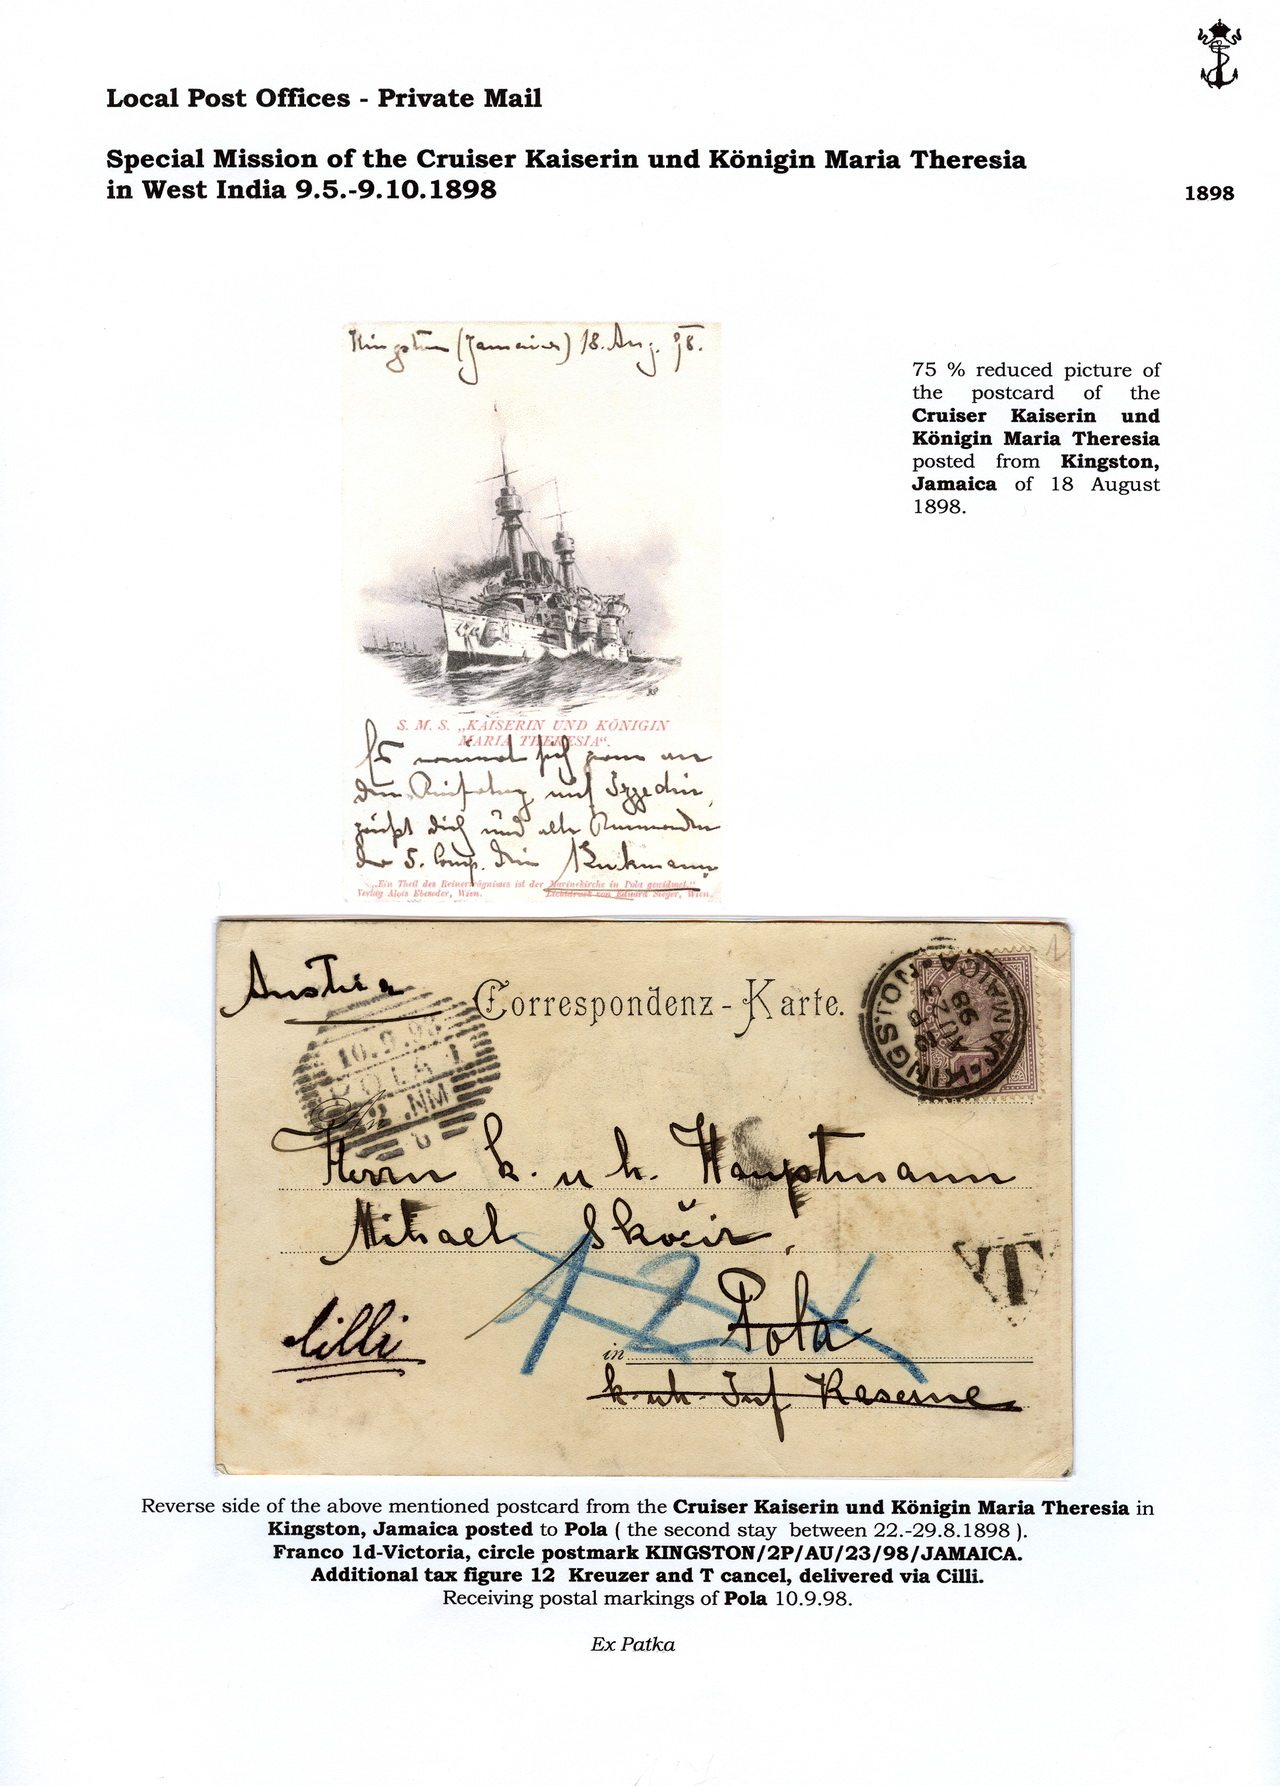 Local Post Offices - Private Mail
Special Mission of the Cruiser Kaiserin und Königin Maria Theresia
in West India 9.5.-9.10.1898
1898
Kingston (Jamaica) 18. Aug. 98.
75 % reduced picture of
the postcard of the
Cruiser Kaiserin und
Königin Maria Theresia
posted from Kingston,
Jamaica of 18 August
1898.
S. M. S. „KAISERIN UND KÖNIGIN
MARIA THERESIA“.
dich und alle
der 5. Comp. Dein
„Ein Theil des Reinerträgnisses ist der Marinekirche in Pola gewidmet.“
Verlag Alois Ebeseder, Wien. Lichtdruck von Eduard Sieger, Wien.
Austria
Correspondenz-Karte.
10.9.98
POLA 1
2.NM
KINGSTON JAMAICA
AU 23
98
An
Herrn k. u. k. Hauptmann
Mihael Skočir,
T
12
Pola
Cilli
in
k. u. k. Inf Kaserne
Reverse side of the above mentioned postcard from the Cruiser Kaiserin und Königin Maria Theresia in
Kingston, Jamaica posted to Pola ( the second stay between 22.-29.8.1898 ).
Franco 1d-Victoria, circle postmark KINGSTON/2P/AU/23/98/JAMAICA.
Additional tax figure 12 Kreuzer and T cancel, delivered via Cilli.
Receiving postal markings of Pola 10.9.98.
Ex Patka